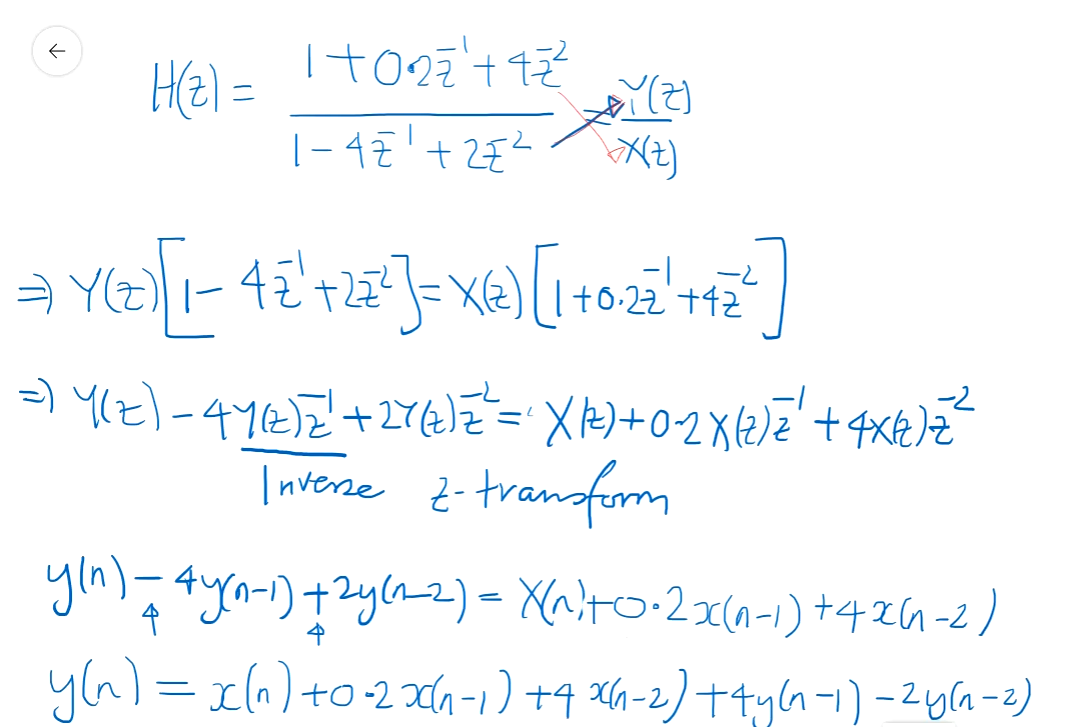 H(z) = (1+0.2z⁻¹+4z⁻²)/(1-4z⁻¹+2z⁻²) = Y(z)/X(z)
⇒ Y(z)[1-4z⁻¹+2z⁻²] = X(z)[1+0.2z⁻¹+4z⁻²]
⇒ Y(z)-4Y(z)z⁻¹+2Y(z)z⁻² = X(z)+0.2X(z)z⁻¹+4X(z)z⁻²
Inverse z-transform
y(n)-4y(n-1)+2y(n-2) = X(n)+0.2x(n-1)+4x(n-2)
y(n) = x(n)+0.2x(n-1)+4x(n-2)+4y(n-1)-2y(n-2)